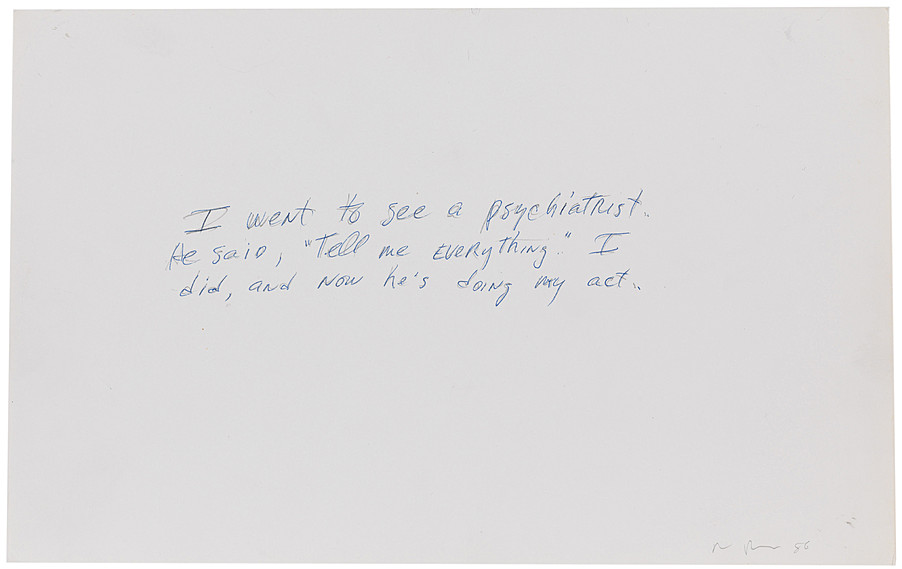 I went to see a psychiatrist.
He said, "Tell me everything." I
did, and now he's doing my act.
86